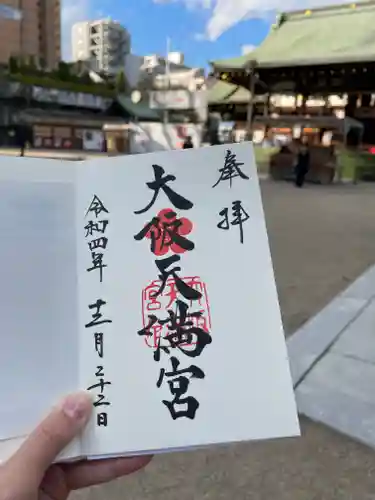 奉拝
大阪天満宮
令和四年
十二月二十二日